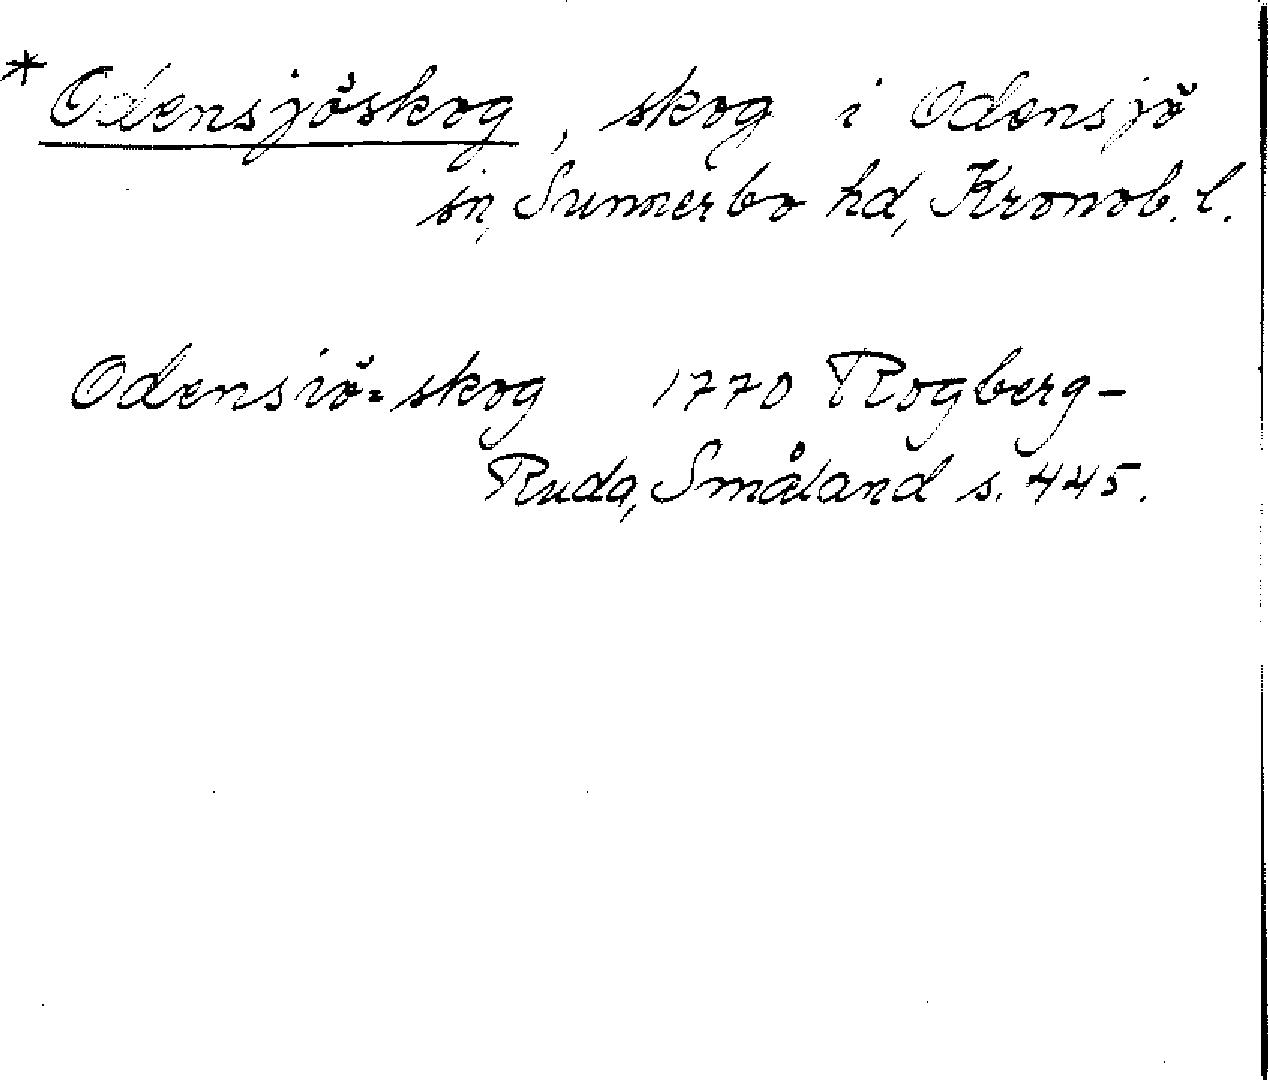 * Odensjöskog, skog i Odensjö
sn, Sunnerbo hd, Kronob. l.
Odensiö=skog 1770 Rogberg-
Ruda, Småland s. 445.